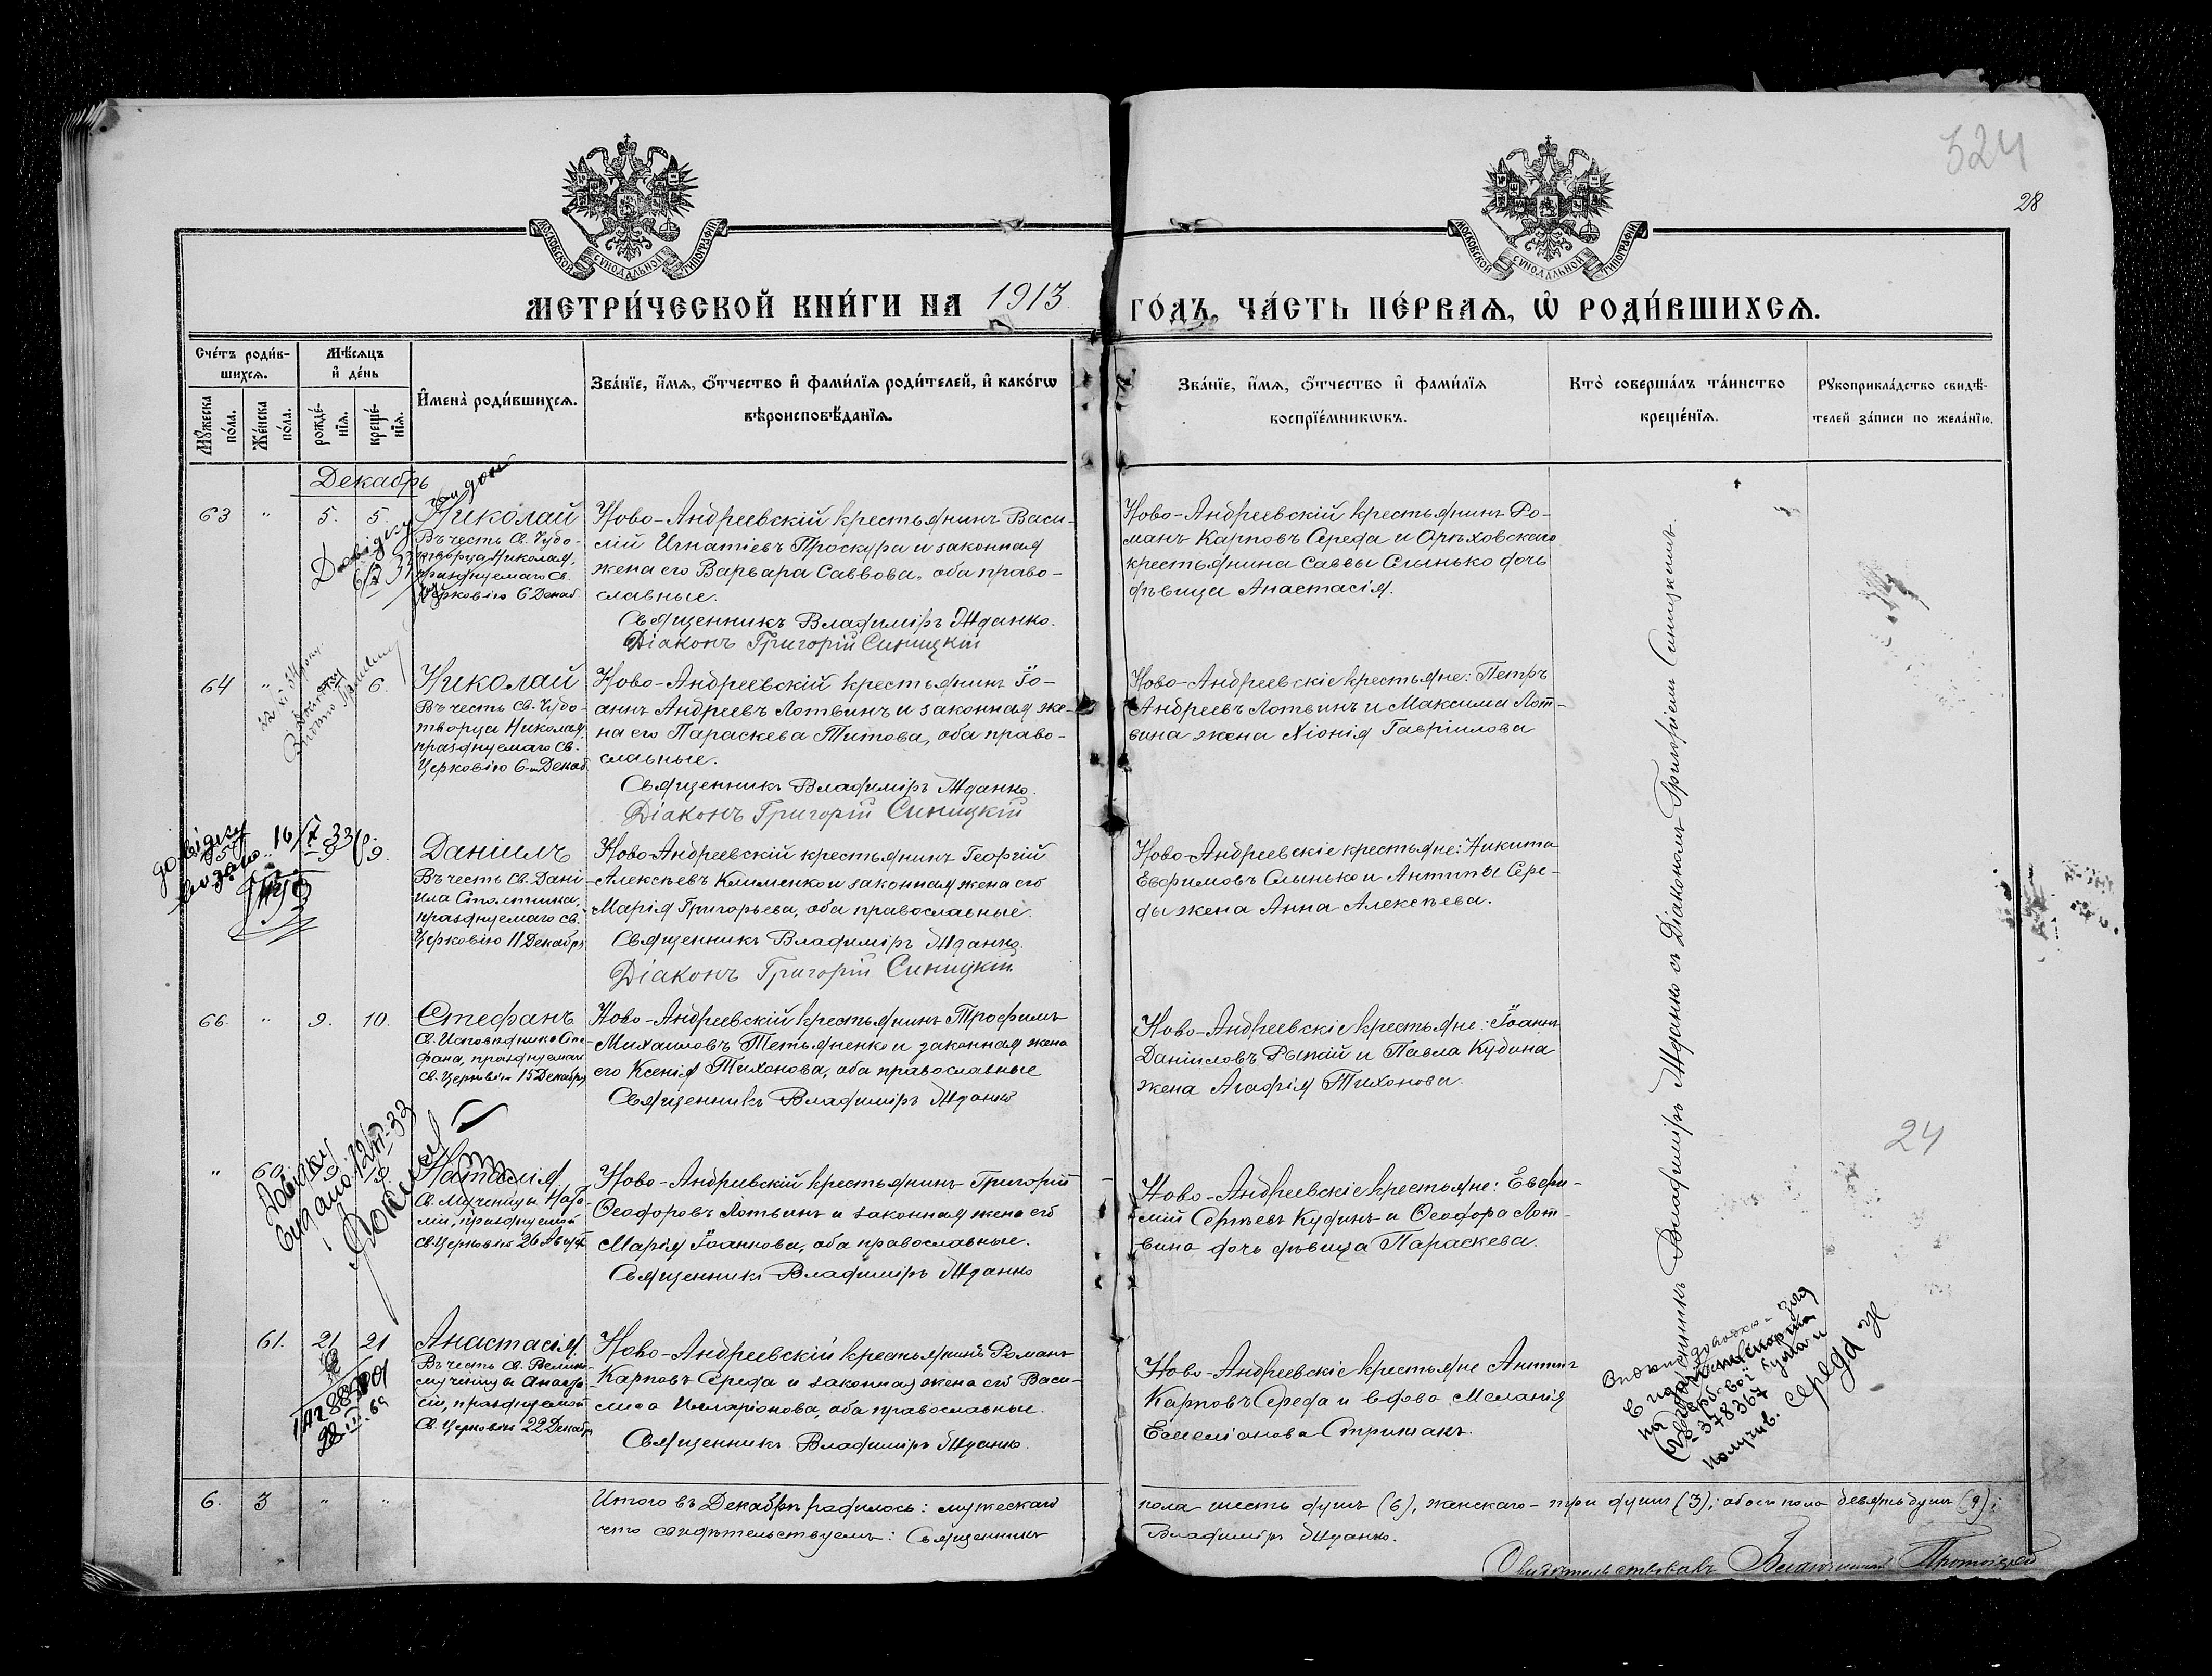 324
28
МОСКОВСКОЙ СУНОДАЛЬНОЙ ТИПОГРАФІИ
МОСКОВСКОЙ СУНОДАЛЬНОЙ ТИПОГРАФІИ
МЕТРИ́ЧЕСКОЙ КНИ́ГИ НА 1913 ГО́ДЪ, ЧА́СТЬ ПЕ́РВАѦ, Ѡ҆ РОДИ́ВШИХСѦ.
Сче́тъ роди́в-
шихсѧ.
Мѣ́сѧцъ
и҆ де́нь
Мꙋ́жеска
по́ла.
Же́нска
по́ла.
рожде́-
нїѧ.
креще́-
нїѧ.
И҆мена̀ роди́вшихсѧ.
Зва́нїе, и҆́мѧ, ѻ҆́тчество и҆ фами́лїѧ роди́телей, и҆ како́гѡ
вѣроисповѣ́данїѧ.
Зва́нїе, и҆́мѧ, ѻ҆́тчество и҆ фами́лїѧ
воспрїе́мникѡвъ.
Кто̀ соверша́лъ та́инство
креще́нїѧ.
Рꙋкоприкла́дство свидѣ́-
телей за́писи по жела́нїю.
Декабрь
63 " 5. 5.
Николай
Въ честь Св. Чудо-
творца Николая,
празднуемаго Св.
Церковію 6 Декаб.
Ново-Андреевскій крестьянинъ Васи-
лій Игнатіевъ Проскура и законная
жена его Варвара Саввова, оба право-
славные.
Священникъ Владиміръ Жданко.
Діаконъ Григорій Синицкій
Ново-Андреевскій крестьянинъ Ро-
манъ Карповъ Середа и Орѣховскаго
крестьянина Саввы Слынько дочь
дѣвица Анастасія.
Довідку
64 " 6.
Николай
Въ честь Св. Чудо-
творца Николая,
празднуемаго Св.
Церковію 6-го Декаб.
Ново-Андреевскій крестьянинъ Іо-
аннъ Андреевъ Лотвинъ и законная же-
на его Параскева Титова, оба право-
славные.
Священникъ Владиміръ Жданко.
Діаконъ Григорій Синицкій
Ново-Андреевскіе крестьяне: Петръ
Андреевъ Лотвинъ и Максима Лот-
вина жена Хіонія Гавріилова
довідку
видано 16/X 33 р.
9.
Даніилъ
Въ честь Св. Дані-
ила Столпника,
празднуемаго Св.
Церковію 11 Декабря
Ново-Андреевскій крестьянинъ Георгій
Алексѣевъ Клименко и законная жена его
Марія Григорьева, оба православные.
Священникъ Владиміръ Жданко.
Діаконъ Григорій Синицкій
Ново-Андреевскіе крестьяне: Никита
Евфимовъ Слынько и Антипы Сере-
ды жена Анна Алексѣева.
66 " 9. 10.
Стефанъ
Св. Исповѣдника Сте-
фана, празднуемаго
Св. Церковію 15 Декабря
Ново-Андреевскій крестьянинъ Трофимъ
Михаиловъ Тетьяненко и законная жена
его Ксенія Тихонова, оба православные
Священникъ Владиміръ Жданко
Ново-Андреевскіе крестьяне: Іоаннъ
Даніиловъ Рыжій и Павла Кудина
жена Агафія Тихонова.
" 60. 9.
Довідку
видано 12/VI-33
Наталія.
Св. Мученицы Ната-
ліи, празднуемой
Св. Церковію 26 Август.
Ново-Андреевскій крестьянинъ Григорій
Ѳеодоровъ Лотвинъ и законная жена его
Марія Іоаннова, оба православные.
Священникъ Владиміръ Жданко
Ново-Андреевскіе крестьяне: Евфи-
мій Сергѣевъ Кудинъ и Ѳеодора Лот-
вина дочь дѣвица Параскева.
24
61. 21 21
28.III.69
Анастасія.
Въ честь Св. Велико-
мученицы Анаста-
сіи, празднуемой
Св. Церковію 22 Декабр
Ново-Андреевскій крестьянинъ Романъ
Карповъ Середа и законная жена его Васи-
лиса Иларіонова, оба православные.
Священникъ Владиміръ Жданко.
Ново-Андреевскіе крестьяне Антипъ
Карповъ Середа и вдова Меланія
Емеліанова Стрижакъ.
Священникъ Владиміръ Жданко съ Діакономъ Григоріемъ Синицкимъ.
378367
получив. Середа
6. 3 " "
Итого въ Декабрѣ родилось: мужескаго пола шесть душъ (6), женскаго - три души (3); обоего пола девять душъ (9);
что свидѣтельствуемъ: Священникъ Владиміръ Жданко.
Свидѣтельствовалъ Благочинный Протоіерей